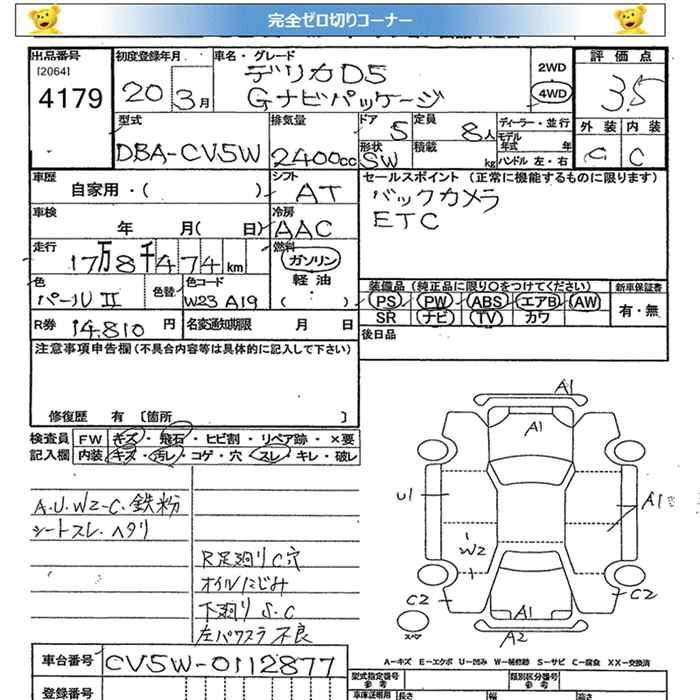 完全ゼロ切りコーナー
出品番号 初度登録年月 車名・グレード
[2064] デリカD5 2WD 評価点
4179 20 3月 Gナビパッケージ 4WD 3.5
型式 排気量 ドア 定員 ディーラー・並行 外装 内装
DBA-CV5W 2400cc 5 8人 モデル年式 年 C
形状 SW 積載 kg ハンドル 左・右
車歴 自家用・( ) シフト AT セールスポイント (正常に機能するものに限ります)
車検 年 月( 日) 冷房 AAC バックカメラ
ETC
走行 17万8千474km 燃料 ガソリン
軽油
( )
色 パールII 色替 色コード W23 A19
装備品 (純正品に限り○をつけてください) 新車保証書
PS PW ABS エアB AW 有・無
SR ナビ TV カワ
R券 14.810円 名変通知期限 月 日 後日品
注意事項申告欄 (不具合内容等は具体的に記入して下さい)
修復歴 有 [箇所 ]
検査員記入欄 FW キズ・飛石・ヒビ割・リペア跡・×要
内装 キズ・汚レ・コゲ・穴・スレ・キレ・破レ
A.U.W2-C.鉄粉
シートスレ.ヘタリ
R足廻りC穴
オイルにじみ
下廻りS.C
左パワスラ不良
A1
A1
U1
A1
W2
C2
C2
A1
スペア
A2
車台番号 CV5W-0112877
A-キズ E-エクボ U-凹み W-補修跡 S-サビ C-腐食 XX-交換済
登録番号
型式指定番号 参考 類別区分番号 参考
車庫証明用 長さ 幅 高さ